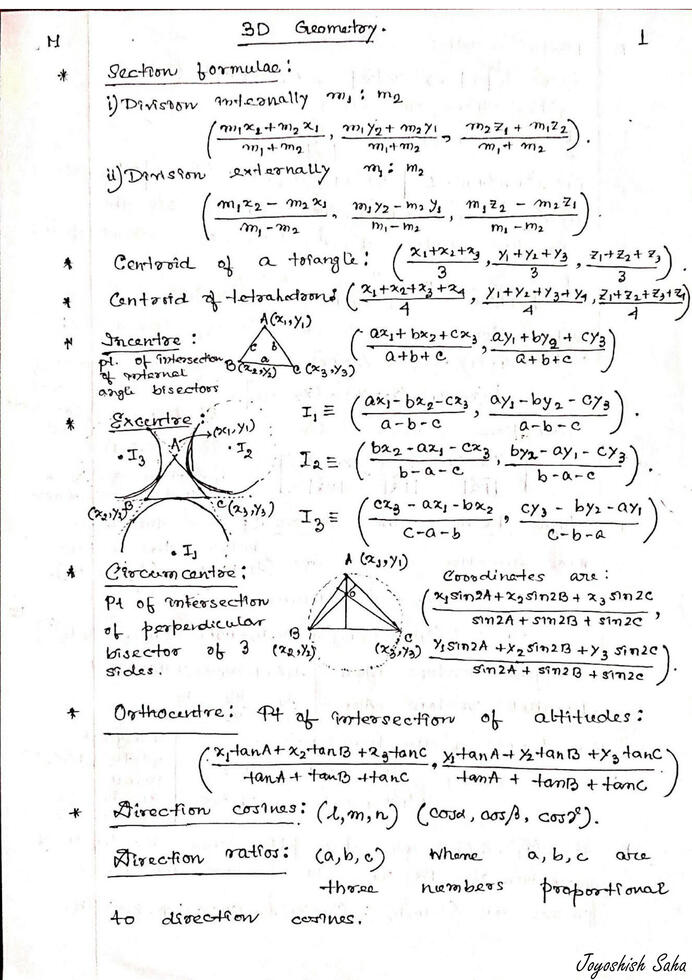 3D Geometry.
M
1
* Section formulae:
i) Division internally m₁ : m₂
( (m₁x₂+m₂x₁)/(m₁+m₂) , (m₁y₂+m₂y₁)/(m₁+m₂) , (m₂z₁+m₁z₂)/(m₁+m₂) ).
ii) Division externally m₁ : m₂
( (m₁x₂ - m₂x₁)/(m₁-m₂) , (m₁y₂-m₂y₁)/(m₁-m₂) , (m₁z₂ - m₂z₁)/(m₁-m₂) ).
* Centroid of a triangle: ( (x₁+x₂+x₃)/3 , (y₁+y₂+y₃)/3 , (z₁+z₂+z₃)/3 ).
* Centroid of tetrahedron: ( (x₁+x₂+x₃+x₄)/4 , (y₁+y₂+y₃+y₄)/4 , (z₁+z₂+z₃+z₄)/4 )
* Incentre:
pt. of intersection
of internal
angle bisectors
A(x₁,y₁)
c b
a
B(x₂,y₂) C(x₃,y₃)
( (ax₁+bx₂+cx₃)/(a+b+c) , (ay₁+by₂+cy₃)/(a+b+c) )
* Excentre:
A (x₁,y₁)
I₃ I₂
B (x₂,y₂) C(x₃,y₃)
I₁
I₁ ≡ ( (ax₁-bx₂-cx₃)/(a-b-c) , (ay₁-by₂-cy₃)/(a-b-c) ).
I₂ ≡ ( (bx₂-ax₁-cx₃)/(b-a-c) , (by₂-ay₁-cy₃)/(b-a-c) ).
I₃ ≡ ( (cx₃-ax₁-bx₂)/(c-a-b) , (cy₃-by₂-ay₁)/(c-b-a) )
* Circumcentre:
Pt of intersection
of perpendicular
bisector of 3
sides.
A (x₁,y₁)
B (x₂,y₂) C (x₃,y₃)
Coordinates are:
( (x₁sin2A+x₂sin2B+x₃sin2C)/(sin2A+sin2B+sin2C) ,
(y₁sin2A+y₂sin2B+y₃sin2C)/(sin2A+sin2B+sin2C) ).
* Orthocentre: Pt of intersection of altitudes:
( (x₁tanA+x₂tanB+x₃tanC)/(tanA+tanB+tanC) , (y₁tanA+y₂tanB+y₃tanC)/(tanA+tanB+tanC) )
* Direction cosines: (l,m,n) (cosα, cosβ, cosγ).
Direction ratios: (a,b,c) Where a,b,c are
three numbers proportional
to direction cosines.
Joyoshish Saha